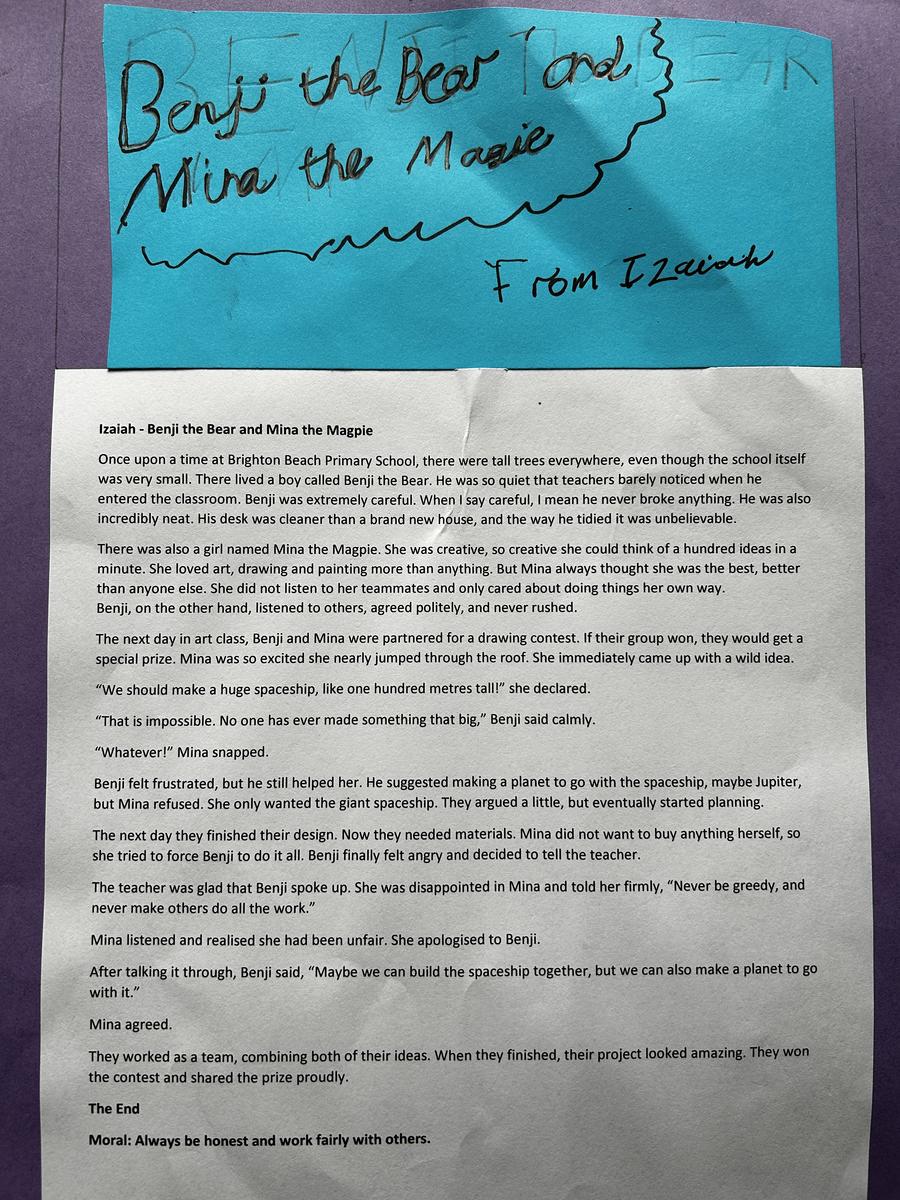 Benji the Bear and
Mina the Magie
From Izaiah
Izaiah - Benji the Bear and Mina the Magpie
Once upon a time at Brighton Beach Primary School, there were tall trees everywhere, even though the school itself
was very small. There lived a boy called Benji the Bear. He was so quiet that teachers barely noticed when he
entered the classroom. Benji was extremely careful. When I say careful, I mean he never broke anything. He was also
incredibly neat. His desk was cleaner than a brand new house, and the way he tidied it was unbelievable.
There was also a girl named Mina the Magpie. She was creative, so creative she could think of a hundred ideas in a
minute. She loved art, drawing and painting more than anything. But Mina always thought she was the best, better
than anyone else. She did not listen to her teammates and only cared about doing things her own way.
Benji, on the other hand, listened to others, agreed politely, and never rushed.
The next day in art class, Benji and Mina were partnered for a drawing contest. If their group won, they would get a
special prize. Mina was so excited she nearly jumped through the roof. She immediately came up with a wild idea.
“We should make a huge spaceship, like one hundred metres tall!” she declared.
“That is impossible. No one has ever made something that big,” Benji said calmly.
“Whatever!” Mina snapped.
Benji felt frustrated, but he still helped her. He suggested making a planet to go with the spaceship, maybe Jupiter,
but Mina refused. She only wanted the giant spaceship. They argued a little, but eventually started planning.
The next day they finished their design. Now they needed materials. Mina did not want to buy anything herself, so
she tried to force Benji to do it all. Benji finally felt angry and decided to tell the teacher.
The teacher was glad that Benji spoke up. She was disappointed in Mina and told her firmly, “Never be greedy, and
never make others do all the work.”
Mina listened and realised she had been unfair. She apologised to Benji.
After talking it through, Benji said, “Maybe we can build the spaceship together, but we can also make a planet to go
with it.”
Mina agreed.
They worked as a team, combining both of their ideas. When they finished, their project looked amazing. They won
the contest and shared the prize proudly.
The End
Moral: Always be honest and work fairly with others.